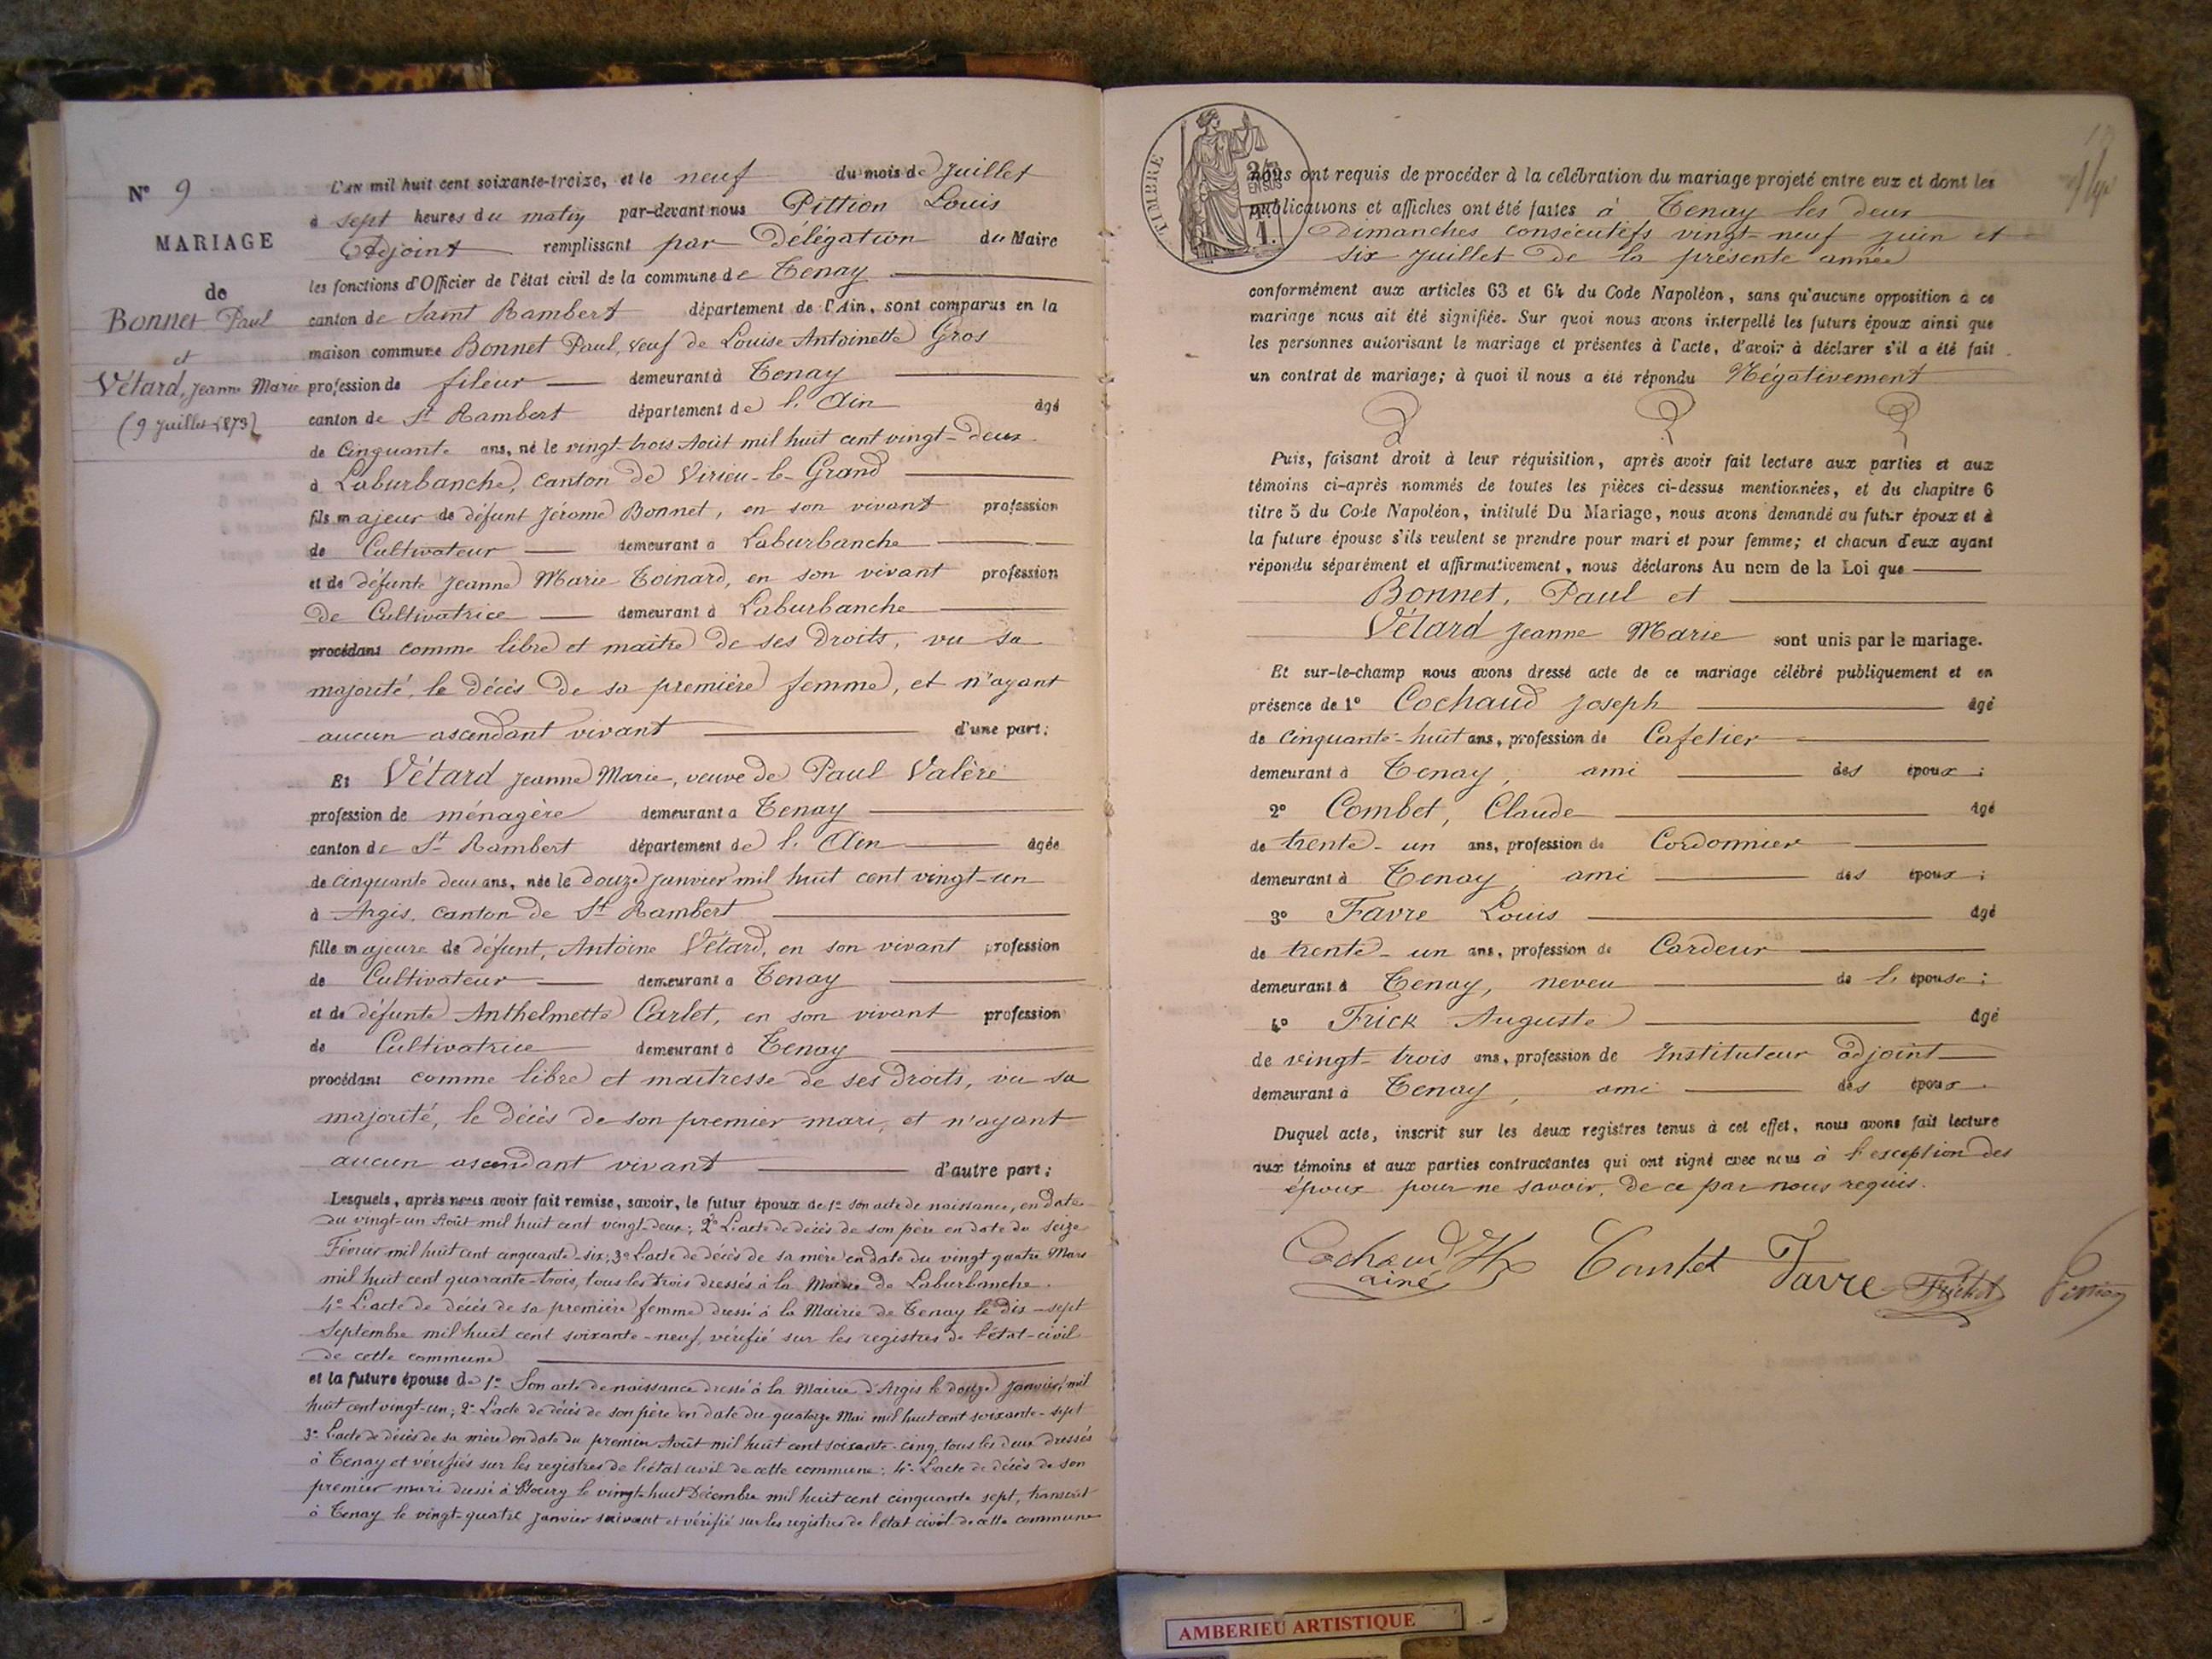 N° 9
MARIAGE
de
Bonnet Paul
et
Vétard, Jeanne Marie
(9 Juillet 1873)
L'AN mil huit cent soixante-treize, et le neuf du mois de Juillet
à sept heures du matin par-devant nous Pittion Louis
Adjoint remplissant par Délégation du Maire
les fonctions d'Officier de l'état civil de la commune de Tenay
canton de Saint Rambert département de l'Ain, sont comparus en la
maison commune Bonnet Paul, veuf de Louise Antoinette Gros
profession de fileur demeurant à Tenay
canton de St Rambert département de l'Ain âgé
de Cinquante ans, né le vingt-trois Août mil huit cent vingt-deux
à Laburbanche, canton de Virieu-le-Grand
fils majeur de défunt Jérome Bonnet, en son vivant profession
de Cultivateur demeurant à Laburbanche
et de défunte Jeanne Marie Toinard, en son vivant profession
de Cultivatrice demeurant à Laburbanche
procédant comme libre et maître de ses droits, vu sa
majorité, le décès de sa première femme, et n'ayant
aucun ascendant vivant d'une part;
Et Vétard Jeanne Marie, veuve de Paul Valère
profession de ménagère demeurant à Tenay
canton de St Rambert département de l'Ain âgée
de cinquante deux ans, née le douze janvier mil huit cent vingt-un
à Argis, canton de St Rambert
fille majeure de défunt, Antoine Vétard, en son vivant profession
de Cultivateur demeurant à Tenay
et de défunte Anthelmette Carlet, en son vivant profession
de Cultivatrice demeurant à Tenay
procédant comme libre et maîtresse de ses droits, vu sa
majorité, le décès de son premier mari, et n'ayant
aucun ascendant vivant d'autre part;
Lesquels, après nous avoir fait remise, savoir, le futur époux de 1° son acte de naissance, en date
du vingt-un Août mil huit cent vingt-deux; 2° L'acte de décès de son père en date du seize
Février mil huit cent cinquante-six; 3° L'acte de décès de sa mère en date du vingt quatre Mars
mil huit cent quarante-trois, tous les trois dressés à la Mairie de Laburbanche.
4° L'acte de décès de sa première femme dressé à la Mairie de Tenay le dix-sept
Septembre mil huit cent soixante-neuf, vérifié sur les registres de l'état-civil
de cette commune
et la future épouse de 1° Son acte de naissance dressé à la Mairie d'Argis le douze Janvier mil
huit cent vingt-un; 2° L'acte de décès de son père en date du quatorze Mai mil huit cent soixante-sept
3° L'acte de décès de sa mère en date du premier Août mil huit cent soixante-cinq, tous les deux dressés
à Tenay et vérifiés sur les registres de l'état civil de cette commune; 4° L'acte de décès de son
premier mari dressé à Bourg le vingt-huit Décembre mil huit cent cinquante sept, transcrit
à Tenay le vingt-quatre janvier suivant et vérifié sur les registres de l'état civil de cette commune
TIMBRE
2/10 EN SUS
1.
nous ont requis de procéder à la célébration du mariage projeté entre eux et dont les
publications et affiches ont été faites à Tenay les deux
Dimanches consécutifs vingt-neuf juin et
six Juillet de la présente année
conformément aux articles 63 et 64 du Code Napoléon, sans qu'aucune opposition à ce
mariage nous ait été signifiée. Sur quoi nous avons interpellé les futurs époux ainsi que
les personnes autorisant le mariage et présentes à l'acte, d'avoir à déclarer s'il a été fait
un contrat de mariage; à quoi il nous a été répondu Négativement
Puis, faisant droit à leur réquisition, après avoir fait lecture aux parties et aux
témoins ci-après nommés de toutes les pièces ci-dessus mentionnées, et du chapitre 6
titre 5 du Code Napoléon, intitulé Du Mariage, nous avons demandé au futur époux et à
la future épouse s'ils veulent se prendre pour mari et pour femme; et chacun d'eux ayant
répondu séparément et affirmativement, nous déclarons Au nom de la Loi que
Bonnet, Paul et
Vétard Jeanne Marie sont unis par le mariage.
Et sur-le-champ nous avons dressé acte de ce mariage célébré publiquement et en
présence de 1° Cochaud Joseph âgé
de Cinquante-huit ans, profession de Cafetier
demeurant à Tenay, ami des époux;
2° Combet, Claude âgé
de trente-un ans, profession de Cordonnier
demeurant à Tenay, ami des époux;
3° Favre Louis âgé
de trente-un ans, profession de Cardeur
demeurant à Tenay, neveu de l'épouse;
4° Frick Auguste âgé
de vingt-trois ans, profession de Instituteur adjoint
demeurant à Tenay, ami des époux.
Duquel acte, inscrit sur les deux registres tenus à cet effet, nous avons fait lecture
aux témoins et aux parties contractantes qui ont signé avec nous à l'exception des
époux pour ne savoir, de ce par nous requis.
Cochaud
ainé
Favre
Pittion
AMBERIEU ARTISTIQUE